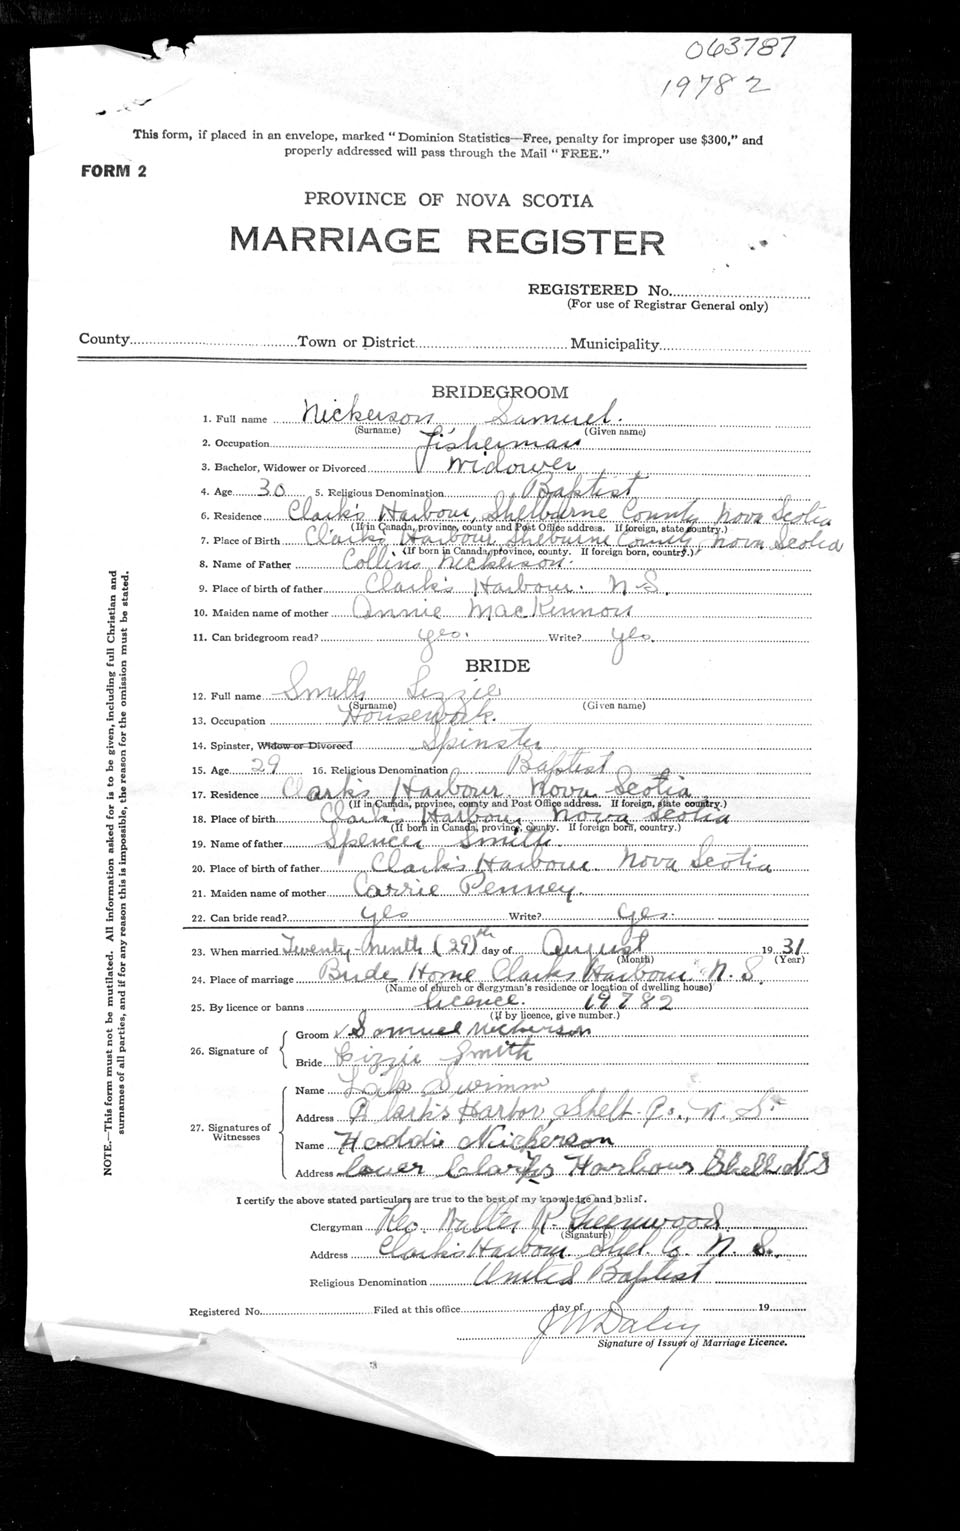 063787
19782
This form, if placed in an envelope, marked "Dominion Statistics—Free, penalty for improper use $300," and
properly addressed will pass through the Mail "FREE."
FORM 2
PROVINCE OF NOVA SCOTIA
MARRIAGE REGISTER
REGISTERED No.
(For use of Registrar General only)
County Town or District Municipality
BRIDEGROOM
1. Full name Nickerson Samuel.
(Surname) (Given name)
2. Occupation Fisherman
3. Bachelor, Widower or Divorced Widower
4. Age 30 5. Religious Denomination Baptist
6. Residence Clark's Harbour, Shelburne County Nova Scotia
(If in Canada, province, county and Post Office address. If foreign, state country.)
7. Place of Birth Clark's Harbour Shelburne County Nova Scotia
(If born in Canada, province, county. If foreign born, country.)
8. Name of Father Collins Nickerson.
9. Place of birth of father Clark's Harbour. N.S.
10. Maiden name of mother Annie MacKinnon
11. Can bridegroom read? yes. Write? yes.
BRIDE
12. Full name Smith Lizzie
(Surname) (Given name)
13. Occupation Housework.
14. Spinster, Widow or Divorced Spinster
15. Age 29 16. Religious Denomination Baptist
17. Residence Clark's Harbour Nova Scotia
(If in Canada, province, county and Post Office address. If foreign, state country.)
18. Place of birth Clark's Harbour Nova Scotia
(If born in Canada, province, county. If foreign born, country.)
19. Name of father Spencer Smith.
20. Place of birth of father Clark's Harbour Nova Scotia
21. Maiden name of mother Carrie Penney.
22. Can bride read? yes Write? yes.
23. When married Twenty-Ninth (29)th day of August 1931
(Month) (Year)
24. Place of marriage Brides Home Clarks Harbour N.S.
(Name of church or clergyman's residence or location of dwelling house)
25. By licence or banns licence. 19782
(If by licence, give number.)
26. Signature of
Groom Samuel Nickerson
Bride Lizzie Smith
27. Signatures of Witnesses
Name Swimm
Address Clark's Harbor, Shelb. Co., N.S.
Name Haddie Nickerson
Address Lower Clark's Harbour Shelb NS
I certify the above stated particulars are true to the best of my knowledge and belief.
Clergyman Rev. Walter R. Greenwood
(Signature)
Address Clark's Harbour Shel. Co. N.S.
Religious Denomination United Baptist
Registered No. Filed at this office day of 19
J W Daley
Signature of Issuer of Marriage Licence.
NOTE.—This form must not be mutilated. All information asked for is to be given, including full Christian and
surnames of all parties, and if for any reason this is impossible, the reason for the omission must be stated.